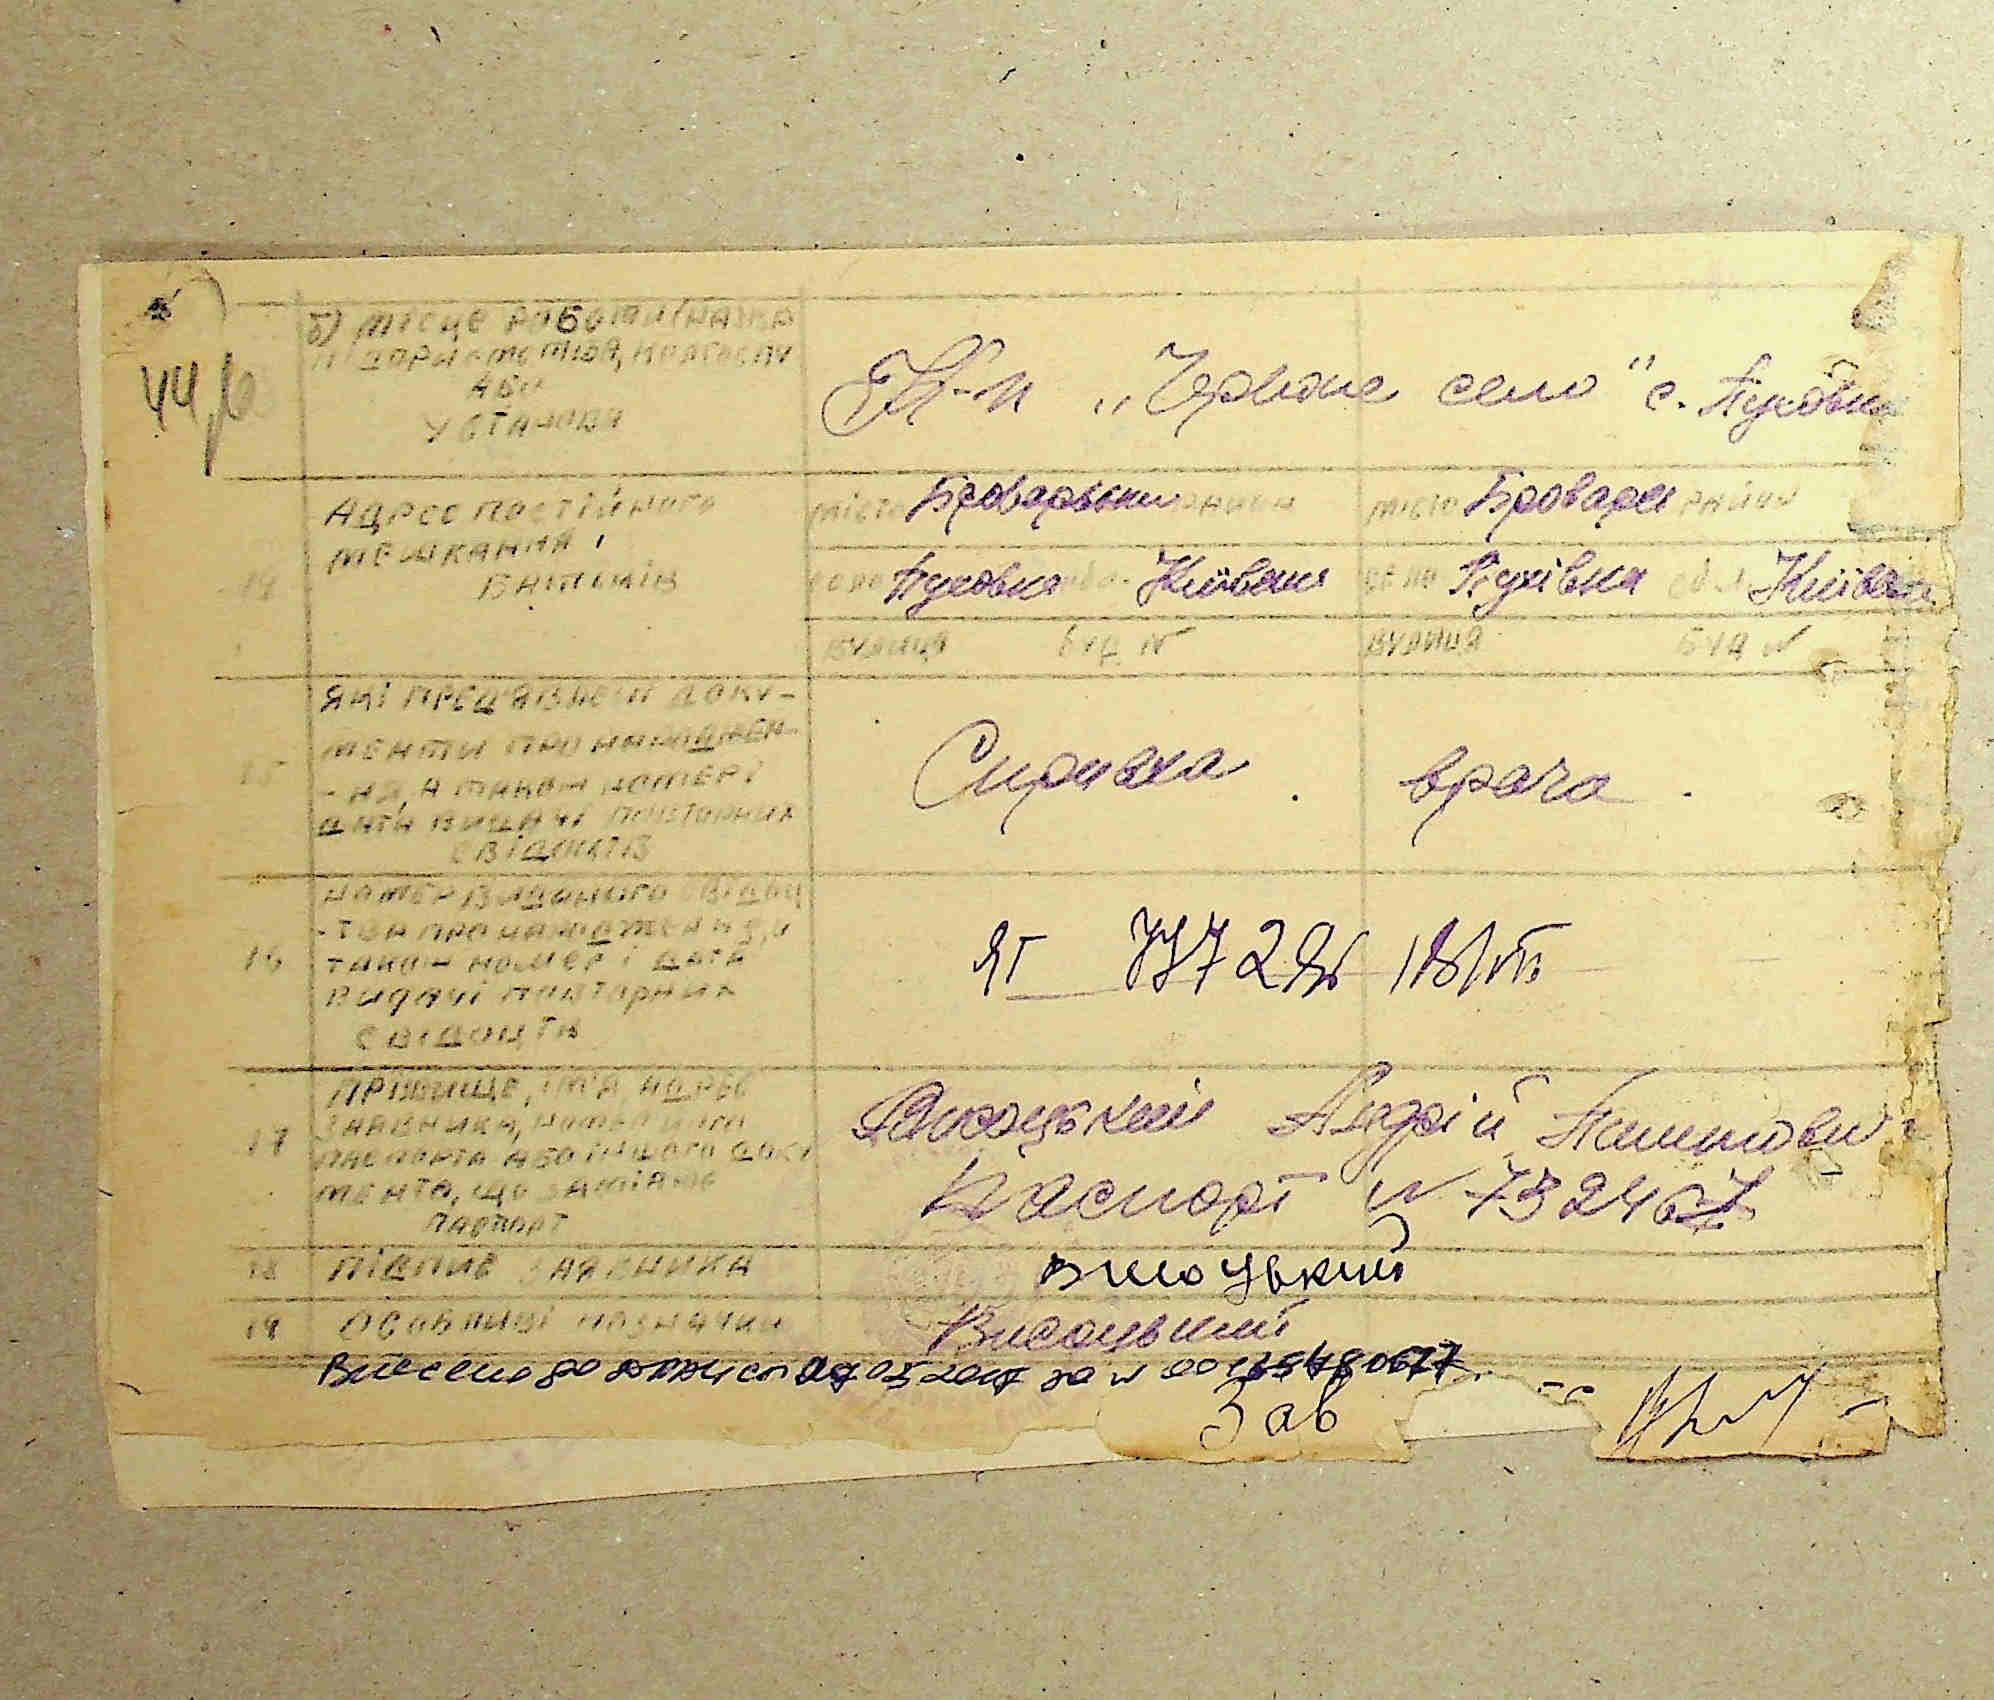 44
б) місце роботи (назва
підприємства, колгоспу
або
установи
К-п „Червоне село" с. Пуховка
Адрес постійного
мешкання
батьків
14
місто Броварський район
місто Бровари район
село Пуховка обл. Київська
село Пухівка обл. Київська
вулиця буд №
вулиця буд №
15
Які пред'явлені доку-
менти про народжен-
-ня, а також номері
дати видачі повторних
свідоцтв
Справка врача
16
Номер виданого свідоц
-тва про народження, а
також номер і дата
видачі повторних
свідоцтв
ЯГ
17
Прізвище, ім'я адрес
заявника, номер його
паспорта або іншого доку
мента, що заміняє
паспорт
Висоцький Андрій
Паспорт № 732467
18
Підпис заявника
Висоцький
19
Особливі позначки
Висоцький
Внесено до 05 2007 за №
Зав